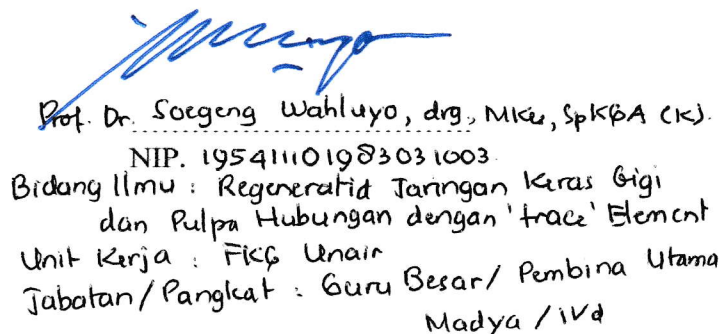 Prof. Dr. Soegeng Wahluyo, drg., MKes, SpKGA (K).
NIP. 195411101983031003
Bidang Ilmu : Regeneratid Jaringan Keras Gigi
dan Pulpa Hubungan dengan 'trace' Element
Unit Kerja : FKG Unair
Jabatan/Pangkat : Guru Besar/ Pembina Utama
Madya / IVd